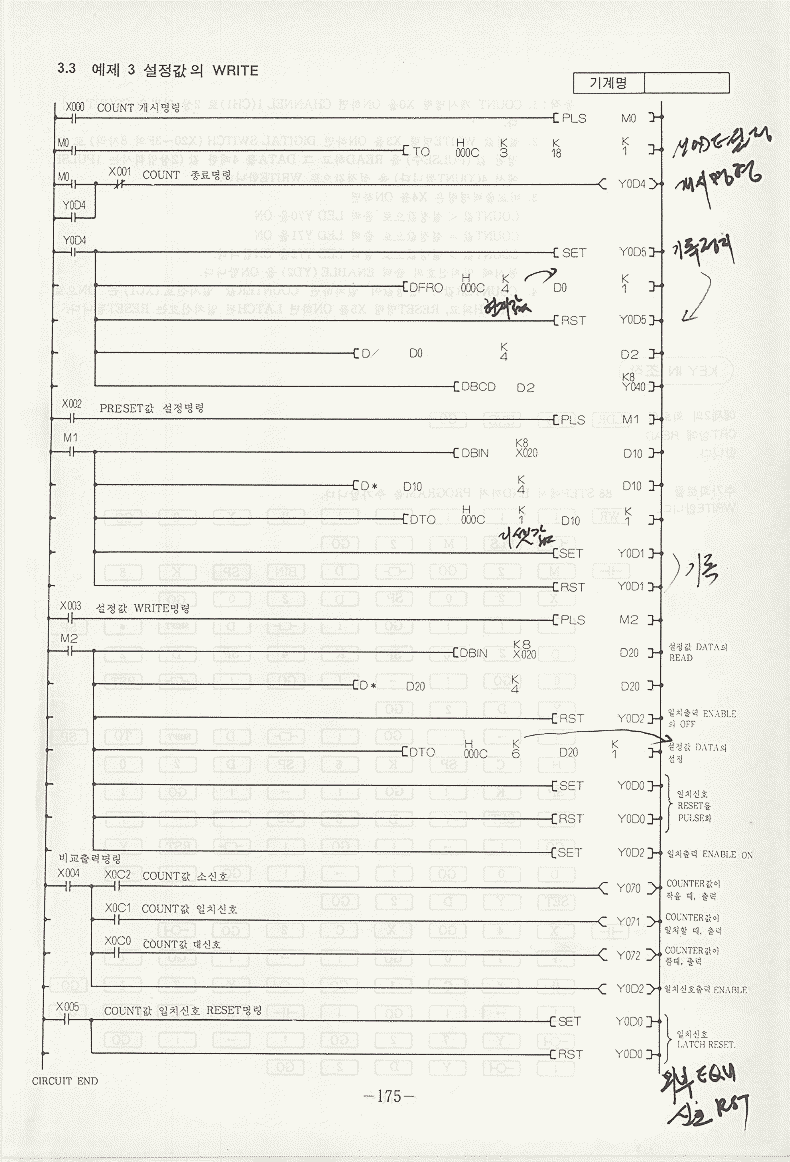 3.3 예제 3 설정값의 WRITE
기계명
X000 COUNT 개시명령
PLS M0
M0
TO H000C K3 K18 K1
M0 X001 COUNT 종료명령
Y0D4
Y0D4
개시명령
Y0D4
SET Y0D5
DFRO H000C K4 D0 K1
현재값
RST Y0D5
D/ D0 K4 D2
DBCD D2 K8Y040
X002 PRESET값 설정명령
PLS M1
M1
DBIN K8X020 D10
D* D10 K4 D10
DTO H000C K1 D10 K1
SET Y0D1
기록
RST Y0D1
X003 설정값 WRITE명령
PLS M2
M2
DBIN K8X020 D20
설정값 DATA의
READ
D* D20 K4 D20
RST Y0D2
일치출력 ENABLE
의 OFF
DTO H000C K6 D20 K1
설정값 DATA의
설정
SET Y0D0
일치신호
RESET을
PULSE화
RST Y0D0
SET Y0D2
일치출력 ENABLE ON
비교출력명령
X004 X0C2 COUNT값 소신호
Y070
COUNTER값이
작을 때, 출력
X0C1 COUNT값 일치신호
Y071
COUNTER값이
일치할 때, 출력
X0C0 COUNT값 대신호
Y072
COUNTER값이
클때, 출력
Y0D2
일치신호출력 ENABLE
X005 COUNT값 일치신호 RESET명령
SET Y0D0
일치신호
LATCH RESET.
RST Y0D0
CIRCUIT END
외부 EQU
신호 RST
-175-